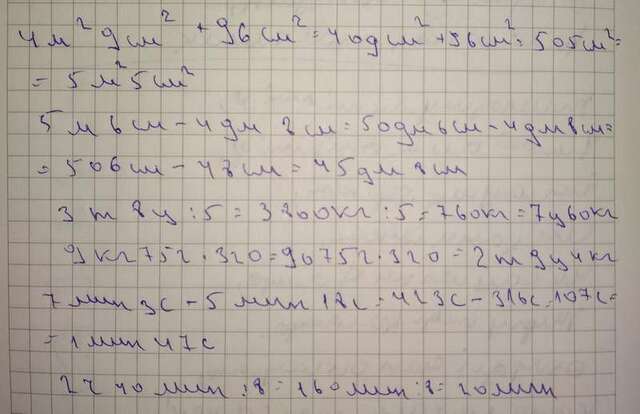 4м² 9см² + 96см² = 409см² + 96см² = 505см² =
= 5м² 5см²
5м 6см - 4дм 8см = 50дм 6см - 4дм 8см =
= 506см - 48см = 45дм 8см
3т 8ц : 5 = 3800кг : 5 = 760кг = 7ц 60кг
9кг 75г · 320 = 9075г · 320 = 2т 9ц 4кг
7мин 3с - 5мин 18с = 423с - 316с = 107с =
= 1мин 47с
2ч 40мин : 8 = 160мин : 8 = 20мин